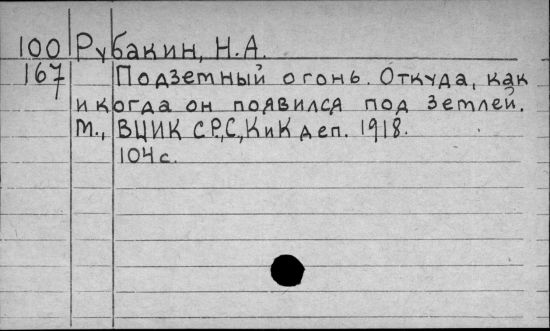 100 Рубакин, Н.А.
167 Подземный огонь. Откуда, как
и когда он появился под землей.
М., ВЦИК СР,С,КиК деп. 1918.
104с.